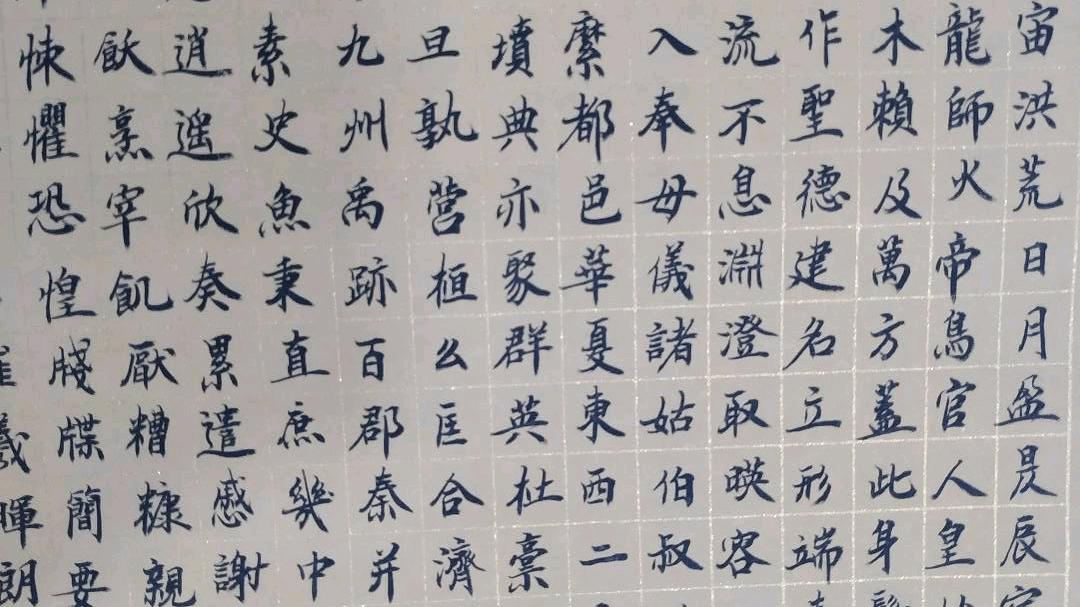 宙洪荒日月盈昃辰
龍師火帝鳥官人皇
木賴及萬方蓋此身
作聖德建名立形端
流不息淵澄取暎容
入奉母儀諸姑伯叔
縻都邑華夏東西二
墳典亦聚群英杜稾
旦孰營桓公匡合濟
九州禹跡百郡秦并
素史魚秉直庶幾中
逍遥欣奏累遣慼謝
飫烹宰飢厭糟糠親
悚懼恐惶牋牒簡要
曦暉朗